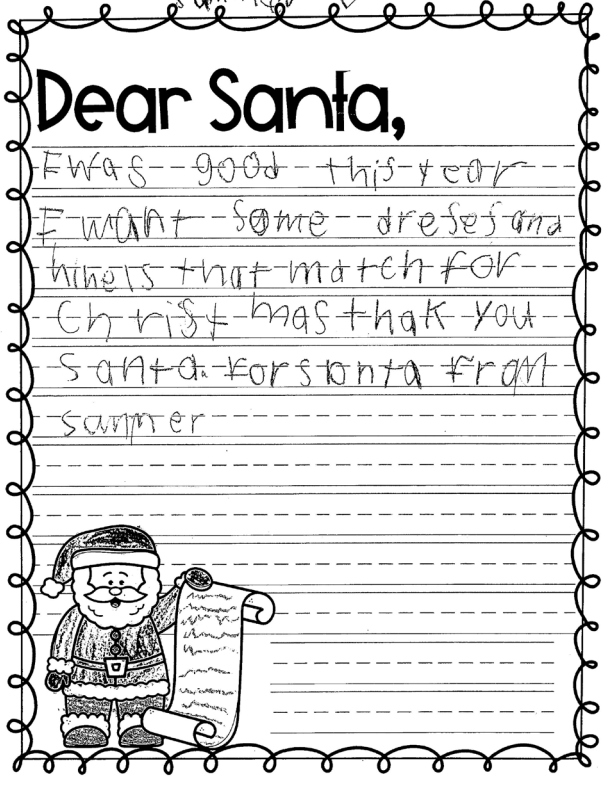 Dear Santa,
I was good this year
I want some dreses and
hinels that match for
Christ mas thak you
Santa. for santa from
sammer